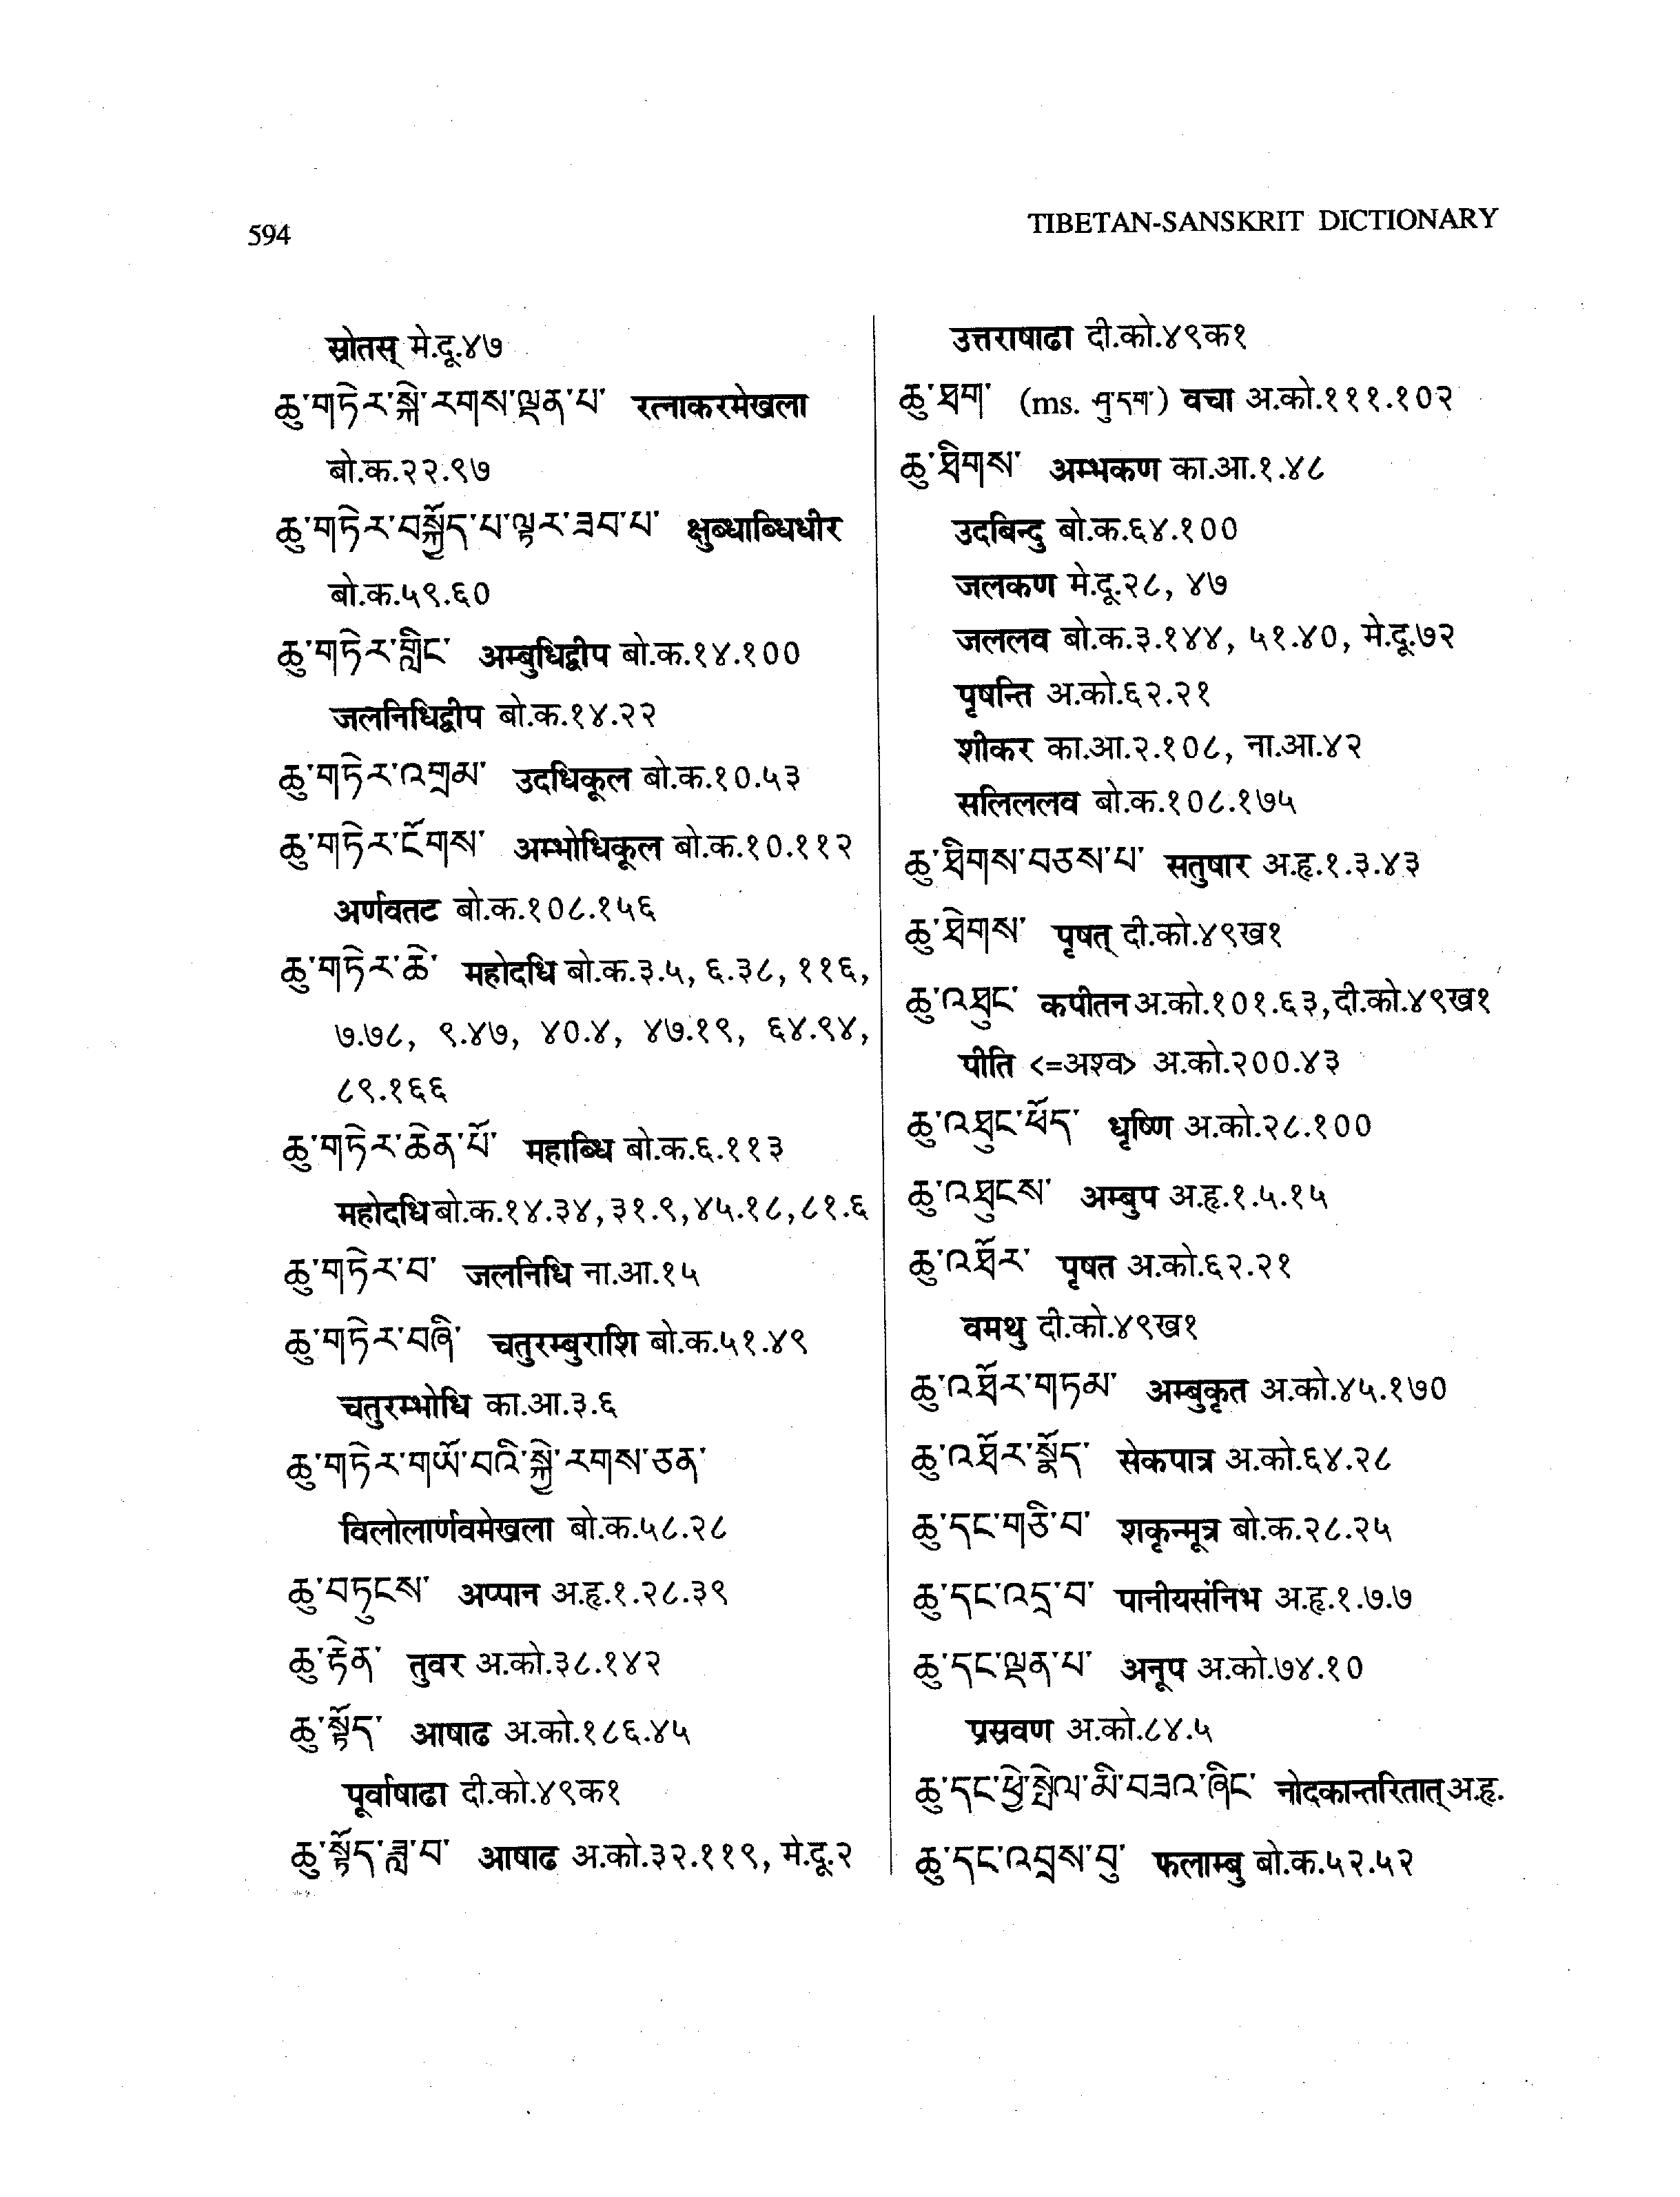 594
TIBETAN-SANSKRIT DICTIONARY
स्रोतस् मे.दू.४७
ཆུ་གཏེར་སྐེ་རགས་ལྡན་པ་ रत्नाकरमेखला
बो.क.२२.९७
ཆུ་གཏེར་བསྐྱོད་པ་ལྟར་ཟབ་པ་ क्षुब्धाब्धिधीर
बो.क.५९.६०
ཆུ་གཏེར་གླིང་ अम्बुधिद्वीप बो.क.१४.१००
जलनिधिद्वीप बो.क.१४.२२
ཆུ་གཏེར་འགྲམ་ उदधिकूल बो.क.१०.५३
ཆུ་གཏེར་ངོགས་ अम्भोधिकूल बो.क.१०.११२
अर्णवतट बो.क.१०८.१५६
ཆུ་གཏེར་ཆེ་ महोदधि बो.क.३.५, ६.३८, ११६,
७.७८, ९.४७, ४०.४, ४७.१९, ६४.९४,
८९.१६६
ཆུ་གཏེར་ཆེན་པོ་ महाब्धि बो.क.६.११३
महोदधि बो.क.१४.३४, ३१.९, ४५.१८, ८१.६
ཆུ་གཏེར་བ་ जलनिधि ना.आ.१५
ཆུ་གཏེར་བཞི་ चतुरम्बुराशि बो.क.५१.४९
चतुरम्भोधि का.आ.३.६
ཆུ་གཏེར་གཡོ་བའི་སྐྱེ་རགས་ཅན་
विलोलार्णवमेखला बो.क.५८.२८
ཆུ་བཏུངས་ अप्पान अ.हृ.१.२८.३९
ཆུ་རྟེན་ तुवर अ.को.३८.१४२
ཆུ་སྟོད་ आषाढ अ.को.१८६.४५
पूर्वाषाढा दी.को.४९क१
ཆུ་སྟོད་ཟླ་བ་ आषाढ अ.को.३२.११९, मे.दू.२
उत्तराषाढा दी.को.४९क१
ཆུ་ཐག་ (ms. ཤུ་དག་) वचा अ.को.१११.१०२
ཆུ་ཐིགས་ अम्भकण का.आ.१.४८
उदबिन्दु बो.क.६४.१००
जलकण मे.दू.२८, ४७
जललव बो.क.३.१४४, ५१.४०, मे.दू.७२
पृषन्ति अ.को.६२.२१
शीकर का.आ.२.१०८, ना.आ.४२
सलिललव बो.क.१०८.१७५
ཆུ་ཐིགས་བཅས་པ་ सतुषार अ.हृ.१.३.४३
ཆུ་ཐེགས་ पृषत् दी.को.४९ख१
ཆུ་འཐུང་ कपीतन अ.को.१०१.६३, दी.को.४९ख१
पीति <=अश्व> अ.को.२००.४३
ཆུ་འཐུང་ཕོད་ धृष्णि अ.को.२८.१००
ཆུ་འཐུངས་ अम्बुप अ.हृ.१.५.१५
ཆུ་འཐོར་ पृषत अ.को.६२.२१
वमथु दी.को.४९ख१
ཆུ་འཐོར་གཏམ་ अम्बुकृत अ.को.४५.१७०
ཆུ་འཐོར་སྣོད་ सेकपात्र अ.को.६४.२८
ཆུ་དང་གཅི་བ་ शकृन्मूत्र बो.क.२८.२५
ཆུ་དང་འདྲ་བ་ पानीयसंनिभ अ.हृ.१.७.७
ཆུ་དང་ལྡན་པ་ अनूप अ.को.७४.१०
प्रस्रवण अ.को.८४.५
ཆུ་དང་ཕྱེ་སྤེལ་མི་བཟའ་ཞིང་ नोदकान्तरितात् अ.हृ.
ཆུ་དང་འབྲས་བུ་ फलाम्बु बो.क.५२.५२